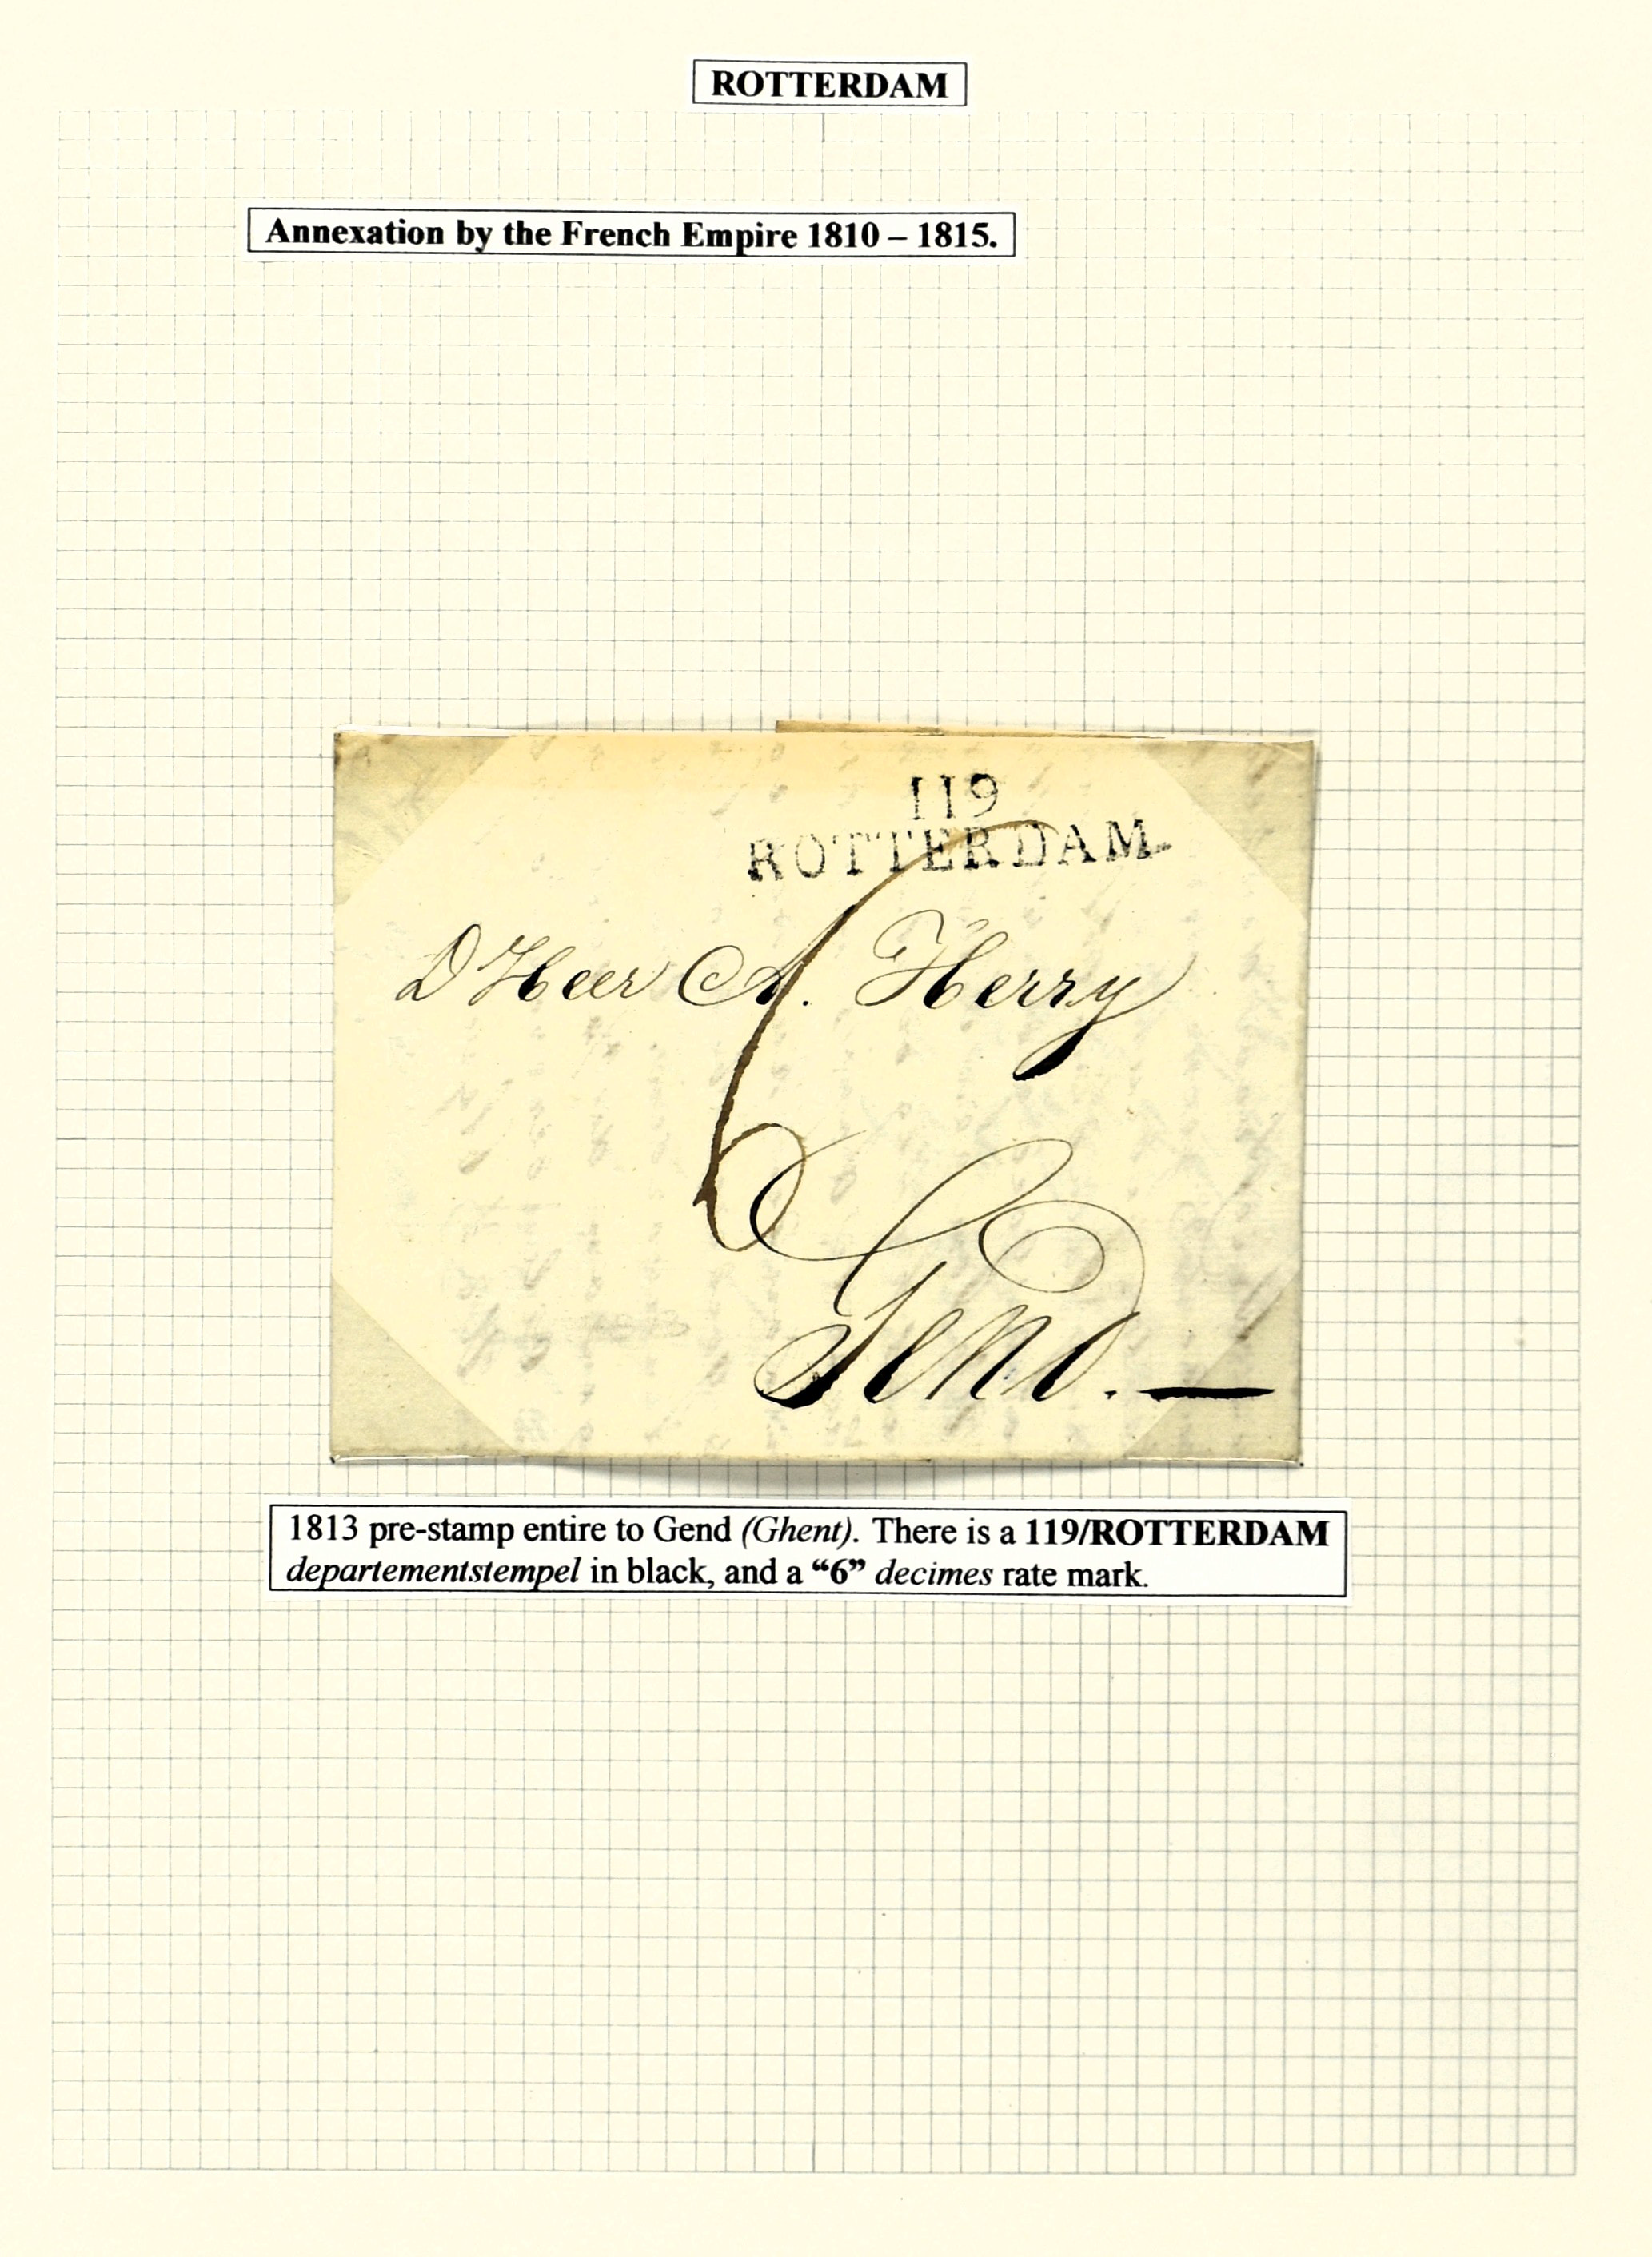 ROTTERDAM
Annexation by the French Empire 1810 – 1815.
119
ROTTERDAM
D Heer A. Herry
6
Gend. —
1813 pre-stamp entire to Gend (Ghent). There is a 119/ROTTERDAM
departementstempel in black, and a “6” decimes rate mark.